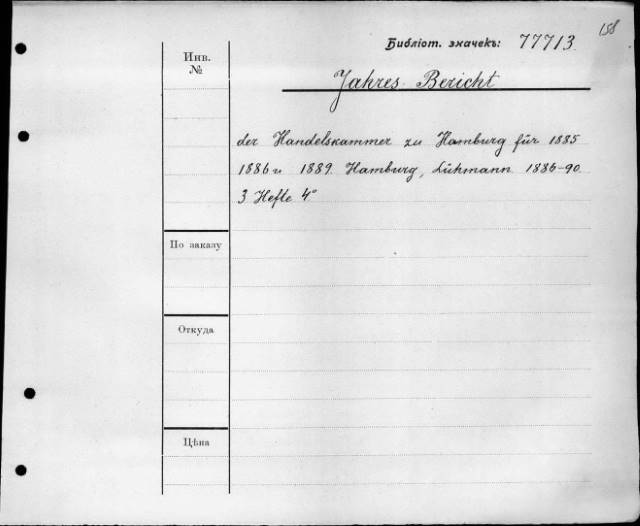 158
Библіот. значекъ: 77713.
Инв.
№
Jahres-Bericht
der Handelskammer zu Hamburg für 1885
1886 u 1889. Hamburg, Lühmann 1886-90.
3 Hefte 4°
По заказу
Откуда
Цѣна